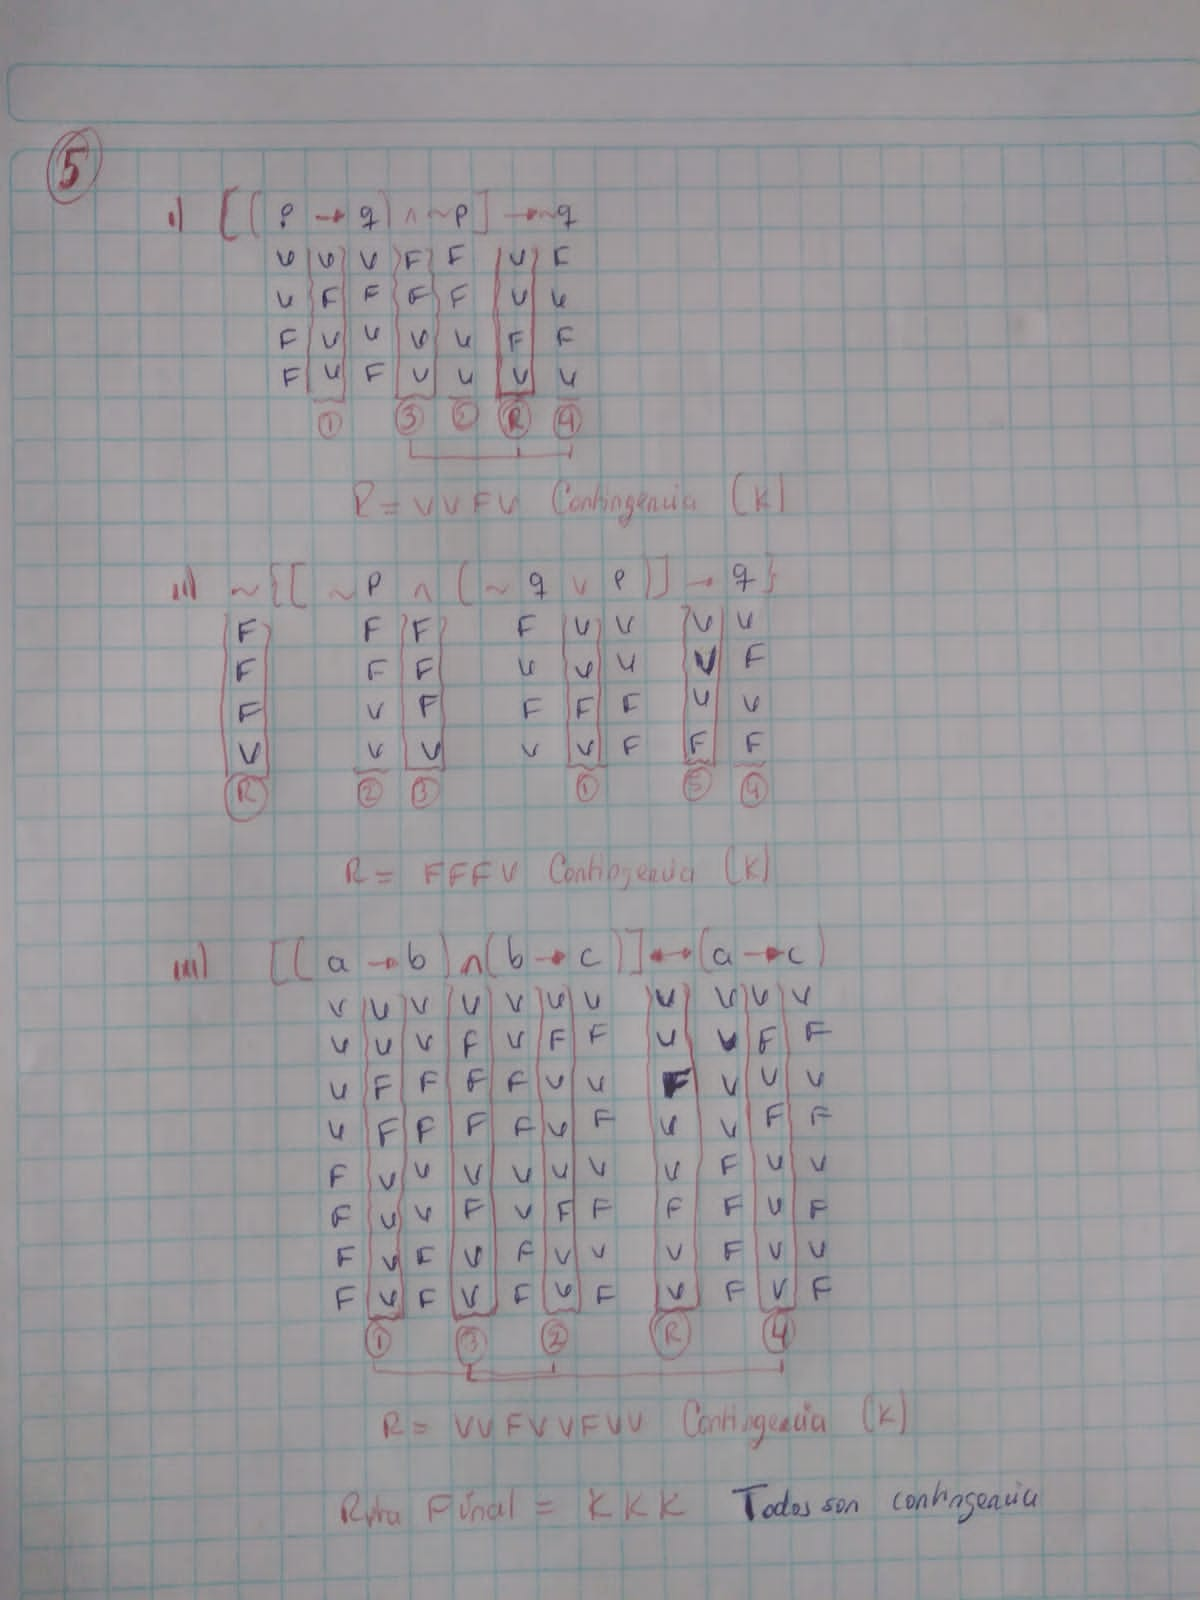 5
i) [(p → q) ∧ ~p] → ~q
V V V F F V F
V F F F F V V
F V V V V F F
F V F V V V V
① ③ ② R ④
R = VVFV Contingencia (K)
ii) ~{[~p ∧ (~q ∨ p)] → q}
F F F F V V V V
F F F V V V V F
F V F F F F V V
V V V V V F F F
R ② ③ ① ⑤ ④
R = FFFV Contingencia (K)
iii) [(a → b) ∧ (b → c)] ↔ (a → c)
V V V V V V V V V V V
V V V F V F F V V F F
V F F F F V V F V V V
V F F F F V F V V F F
F V V V V V V V F V V
F V V F V F F F F V F
F V F V F V V V F V V
F V F V F V F V F V F
① ③ ② R ④
R = VVFVVFVV Contingencia (K)
Rpta Final = KKK Todos son contingencia